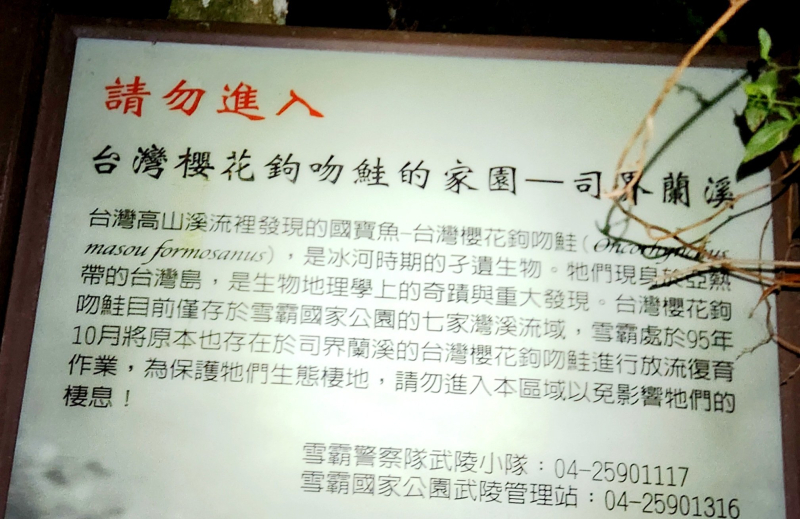 請勿進入
台灣櫻花鉤吻鮭的家園—司界蘭溪
台灣高山溪流裡發現的國寶魚–台灣櫻花鉤吻鮭(Oncorhynchus
masou formosanus),是冰河時期的孑遺生物。牠們現身於亞熱
帶的台灣島,是生物地理學上的奇蹟與重大發現。台灣櫻花鉤
吻鮭目前僅存於雪霸國家公園的七家灣溪流域,雪霸處於95年
10月將原本也存在於司界蘭溪的台灣櫻花鉤吻鮭進行放流復育
作業,為保護牠們生態棲地,請勿進入本區域以免影響牠們的
棲息!
雪霸警察隊武陵小隊:04-25901117
雪霸國家公園武陵管理站:04-25901316